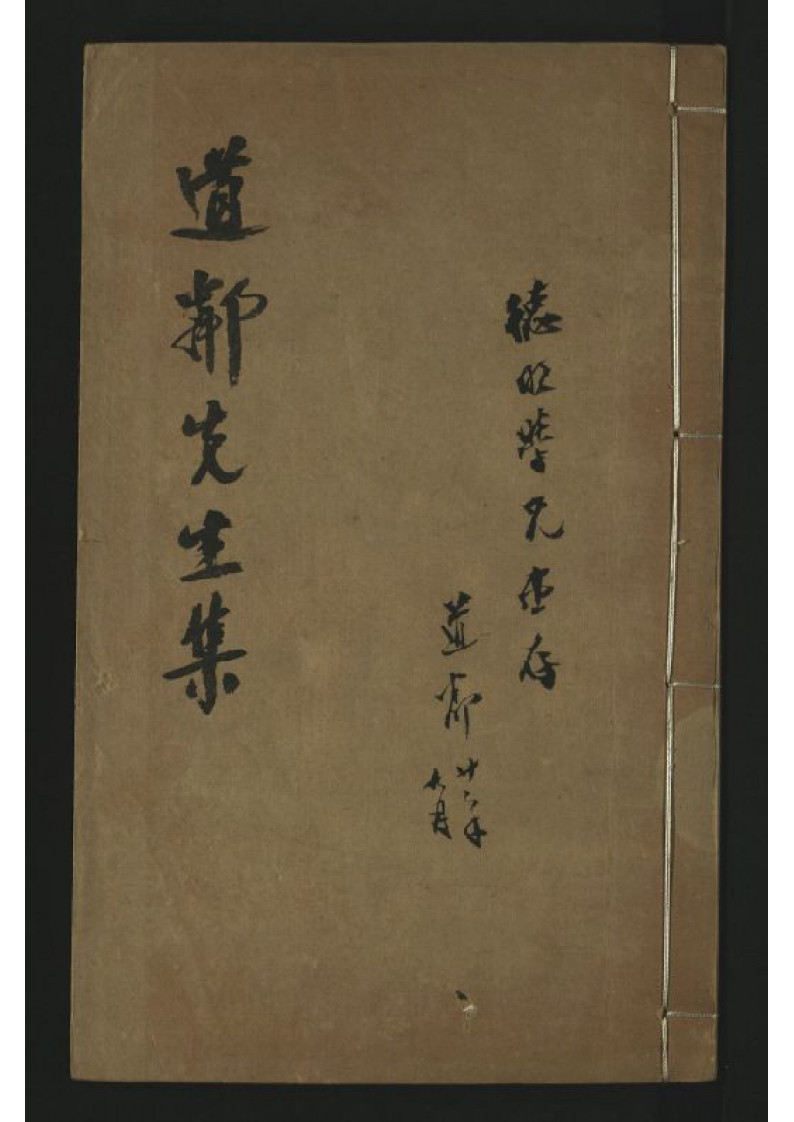 德明學兄惠存
道鄰
廿六年
道鄰先生集